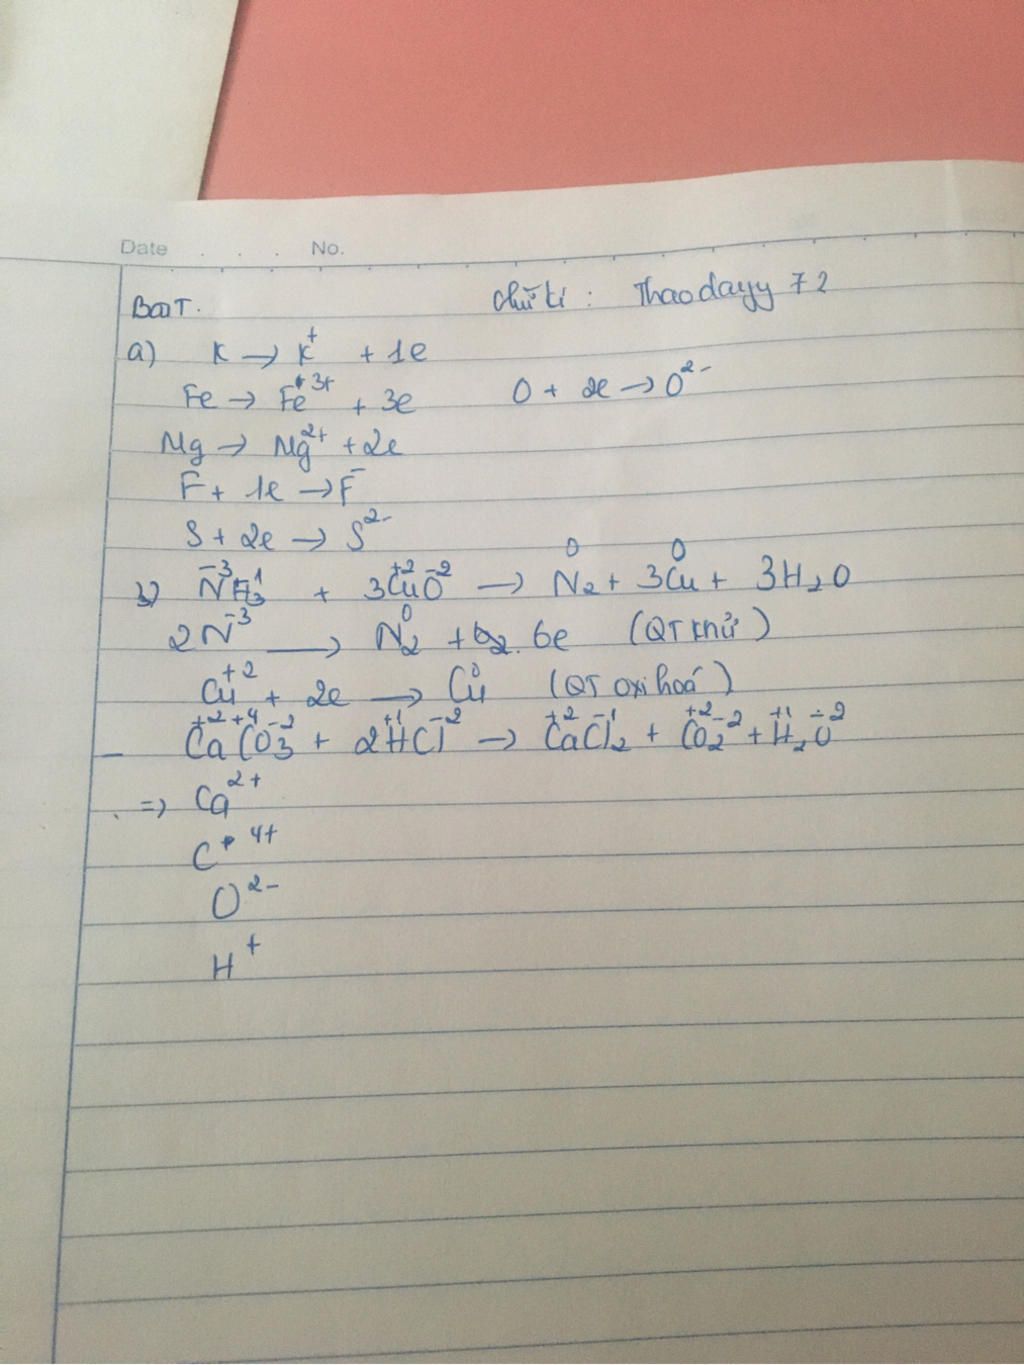 Date . . . . No.
BaiT. Chữ kí : Thaodayy 72
a) K → K⁺ + 1e
Fe → Fe³⁺ + 3e O + 2e → O²⁻
Mg → Mg²⁺ + 2e
F + 1e → F⁻
S + 2e → S²⁻
b) N⁻³H₃⁺¹ + 3Cu⁺²O⁻² → N₂⁰ + 3Cu⁰ + 3H₂O
2N⁻³ → N₂⁰ + 6e (QT khử)
Cu⁺² + 2e → Cu⁰ (QT oxi hoá)
- Ca⁺²C⁺⁴O₃⁻² + 2H⁺¹Cl⁻² → Ca⁺²Cl₂⁻¹ + C⁺²O₂⁻² + H₂⁺¹O⁻²
=> Ca²⁺
C⁴⁺
O²⁻
H⁺